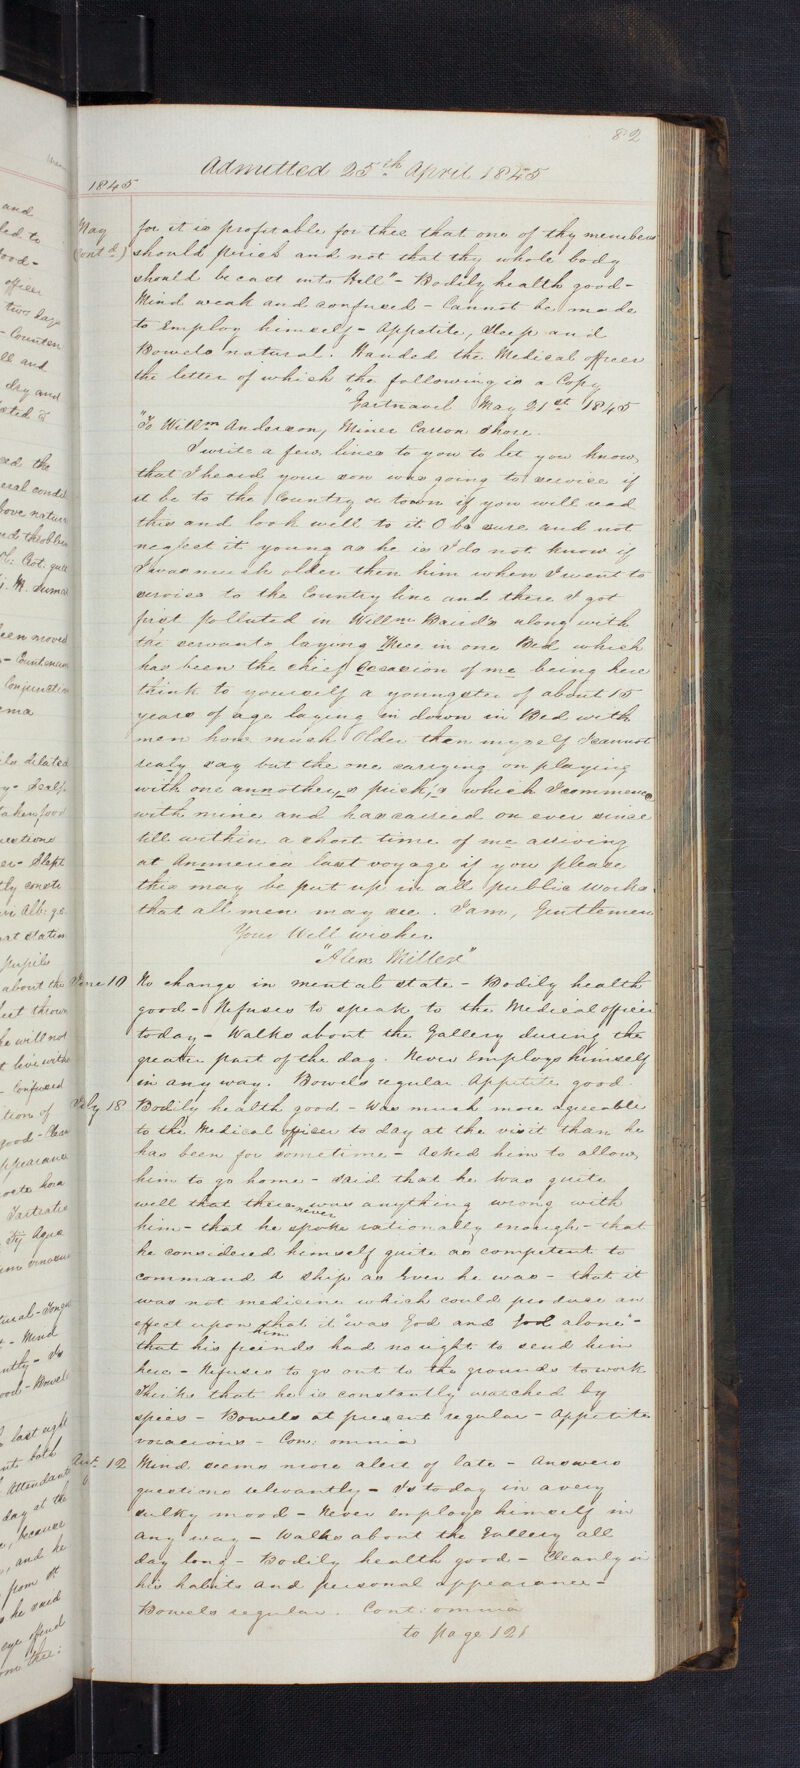 82
Admitted 25th April 1845
1845
May
(Contd)
for it is profitable for thee that one of thy members
should perish and not that thy whole body
should be cast into Hell" - Bodily health good -
Mind weak and confused - Cannot be made
to Employ himself - Appetite, Sleep and
Bowels natural. Handed the Medical officer
the letter of which the following is a Copy
"Gartnavel May 21st 1845
"To Willm Anderson, Miner Carron Shore.
I write a few lines to you to let you know,
that I heard your son was going to service if
it be to the Country or town if you will read
this and look well to it O be sure and not
neglect it young as he is I do not know if
I was much older then him when I went to
servise to the Country line and there I got
first polluted in Willm Baird's along with
the servants laying three in one Bed which
has been the chief Occasion of me being here
think to yourself a youngster of about 15
years of age laying in down in Bed with
men how much Older then myself I cannot
realy say but the one carrying on playing
with one annother,s prick,s which I commence
with mine and has carried on ever since
till within a short time of me arriving
at Anmerica last voyage if you please
this may be put up in all public works
that all men may see. I am, Gentlemen
Your Well wisher
"Alex Miller"
June 10 No change in mental state - Bodily health
good - Refuses to speak to the Medical officer
today - Walks about the Gallery during the
greater part of the day. Never Employs himself
in any way. Bowels regular. Appetite good
July 18 Bodily health good - Was much more agreeable
to the Medical officer to day at the visit than he
has been for sometime - Asked him to allow,
him to go home - said that he was quite
well that there never was anything wrong with
him - that he spoke rationally enough - that
he considered himself quite as competent to
command a ship as Ever he was - that it
was not medicine which could produce an
effect upon him that it "was God and God alone" -
that his friends had no right to send him
here - Refuses to go out to the grounds to work
Thinks that he is constantly watched by
spies - Bowels at present regular - Appetite
voracious - Con: omnia
Augt 12 Mind seems more alert of late - Answers
questions relevantly - Is today in a very
sulky mood - Never employs himself in
any way - Walks about the Gallery all
day long - Bodily health good - Cleanly in
his habits and personal appearance -
Bowels regular. Cont: omnia
to page 121